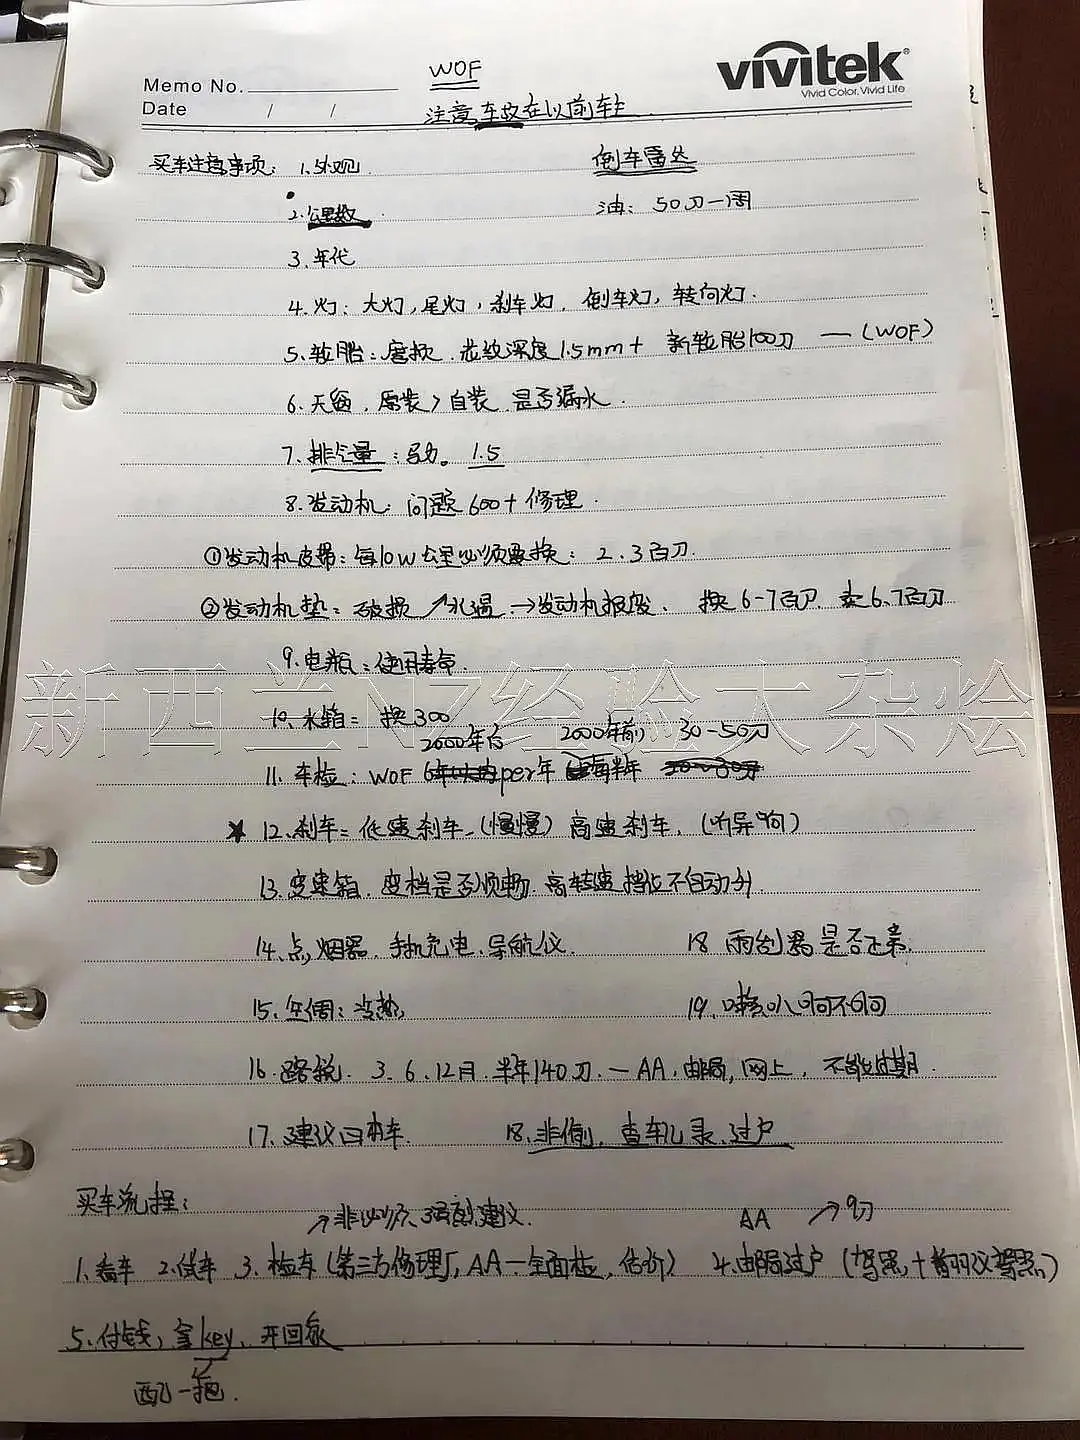 WOF
vivitek
Vivid Color, Vivid Life
Memo No.
Date / /
注意 车
买车注意事项: 1.外观 倒车雷达
2.公里数 油: 50刀一周
3.年代
4.灯: 大灯,尾灯,刹车灯.倒车灯,转向灯.
5.轮胎:磨损.花纹深度1.5mm+ 新轮胎100刀 —(WOF)
6.天窗.原装>自装 是否漏水.
7.排气量:马力。1.5
8.发动机:问题600+修理.
①发动机皮带:每10w公里必须要换:2.3百刀.
②发动机垫:破损↗水温→发动机报废、换6-7百刀.卖6.7百刀
9.电瓶:使用寿命.
新西兰NZ经验大杂烩
10.水箱:换300
2000年后 2000年前 30-50刀
11.车检:WOF per年 每半年
★12.刹车:低速刹车.(慢慢)高速刹车.(听异响)
13.变速箱.变档是否顺畅.高转速挡位不自动升
14.点烟器.手机充电.导航仪. 18.雨刮器是否正常.
15.空调:冷热, 19.喇叭响不响
16.路税.3.6.12月.半年140刀.—AA,邮局,网上,不能过期.
17.建议日本车. 18.非偷,查车记录、过户
买车流程:
↗非必须、强烈建议. AA ↗9刀
1.看车 2.试车 3.检车(第三方修理厂,AA—全面检,估价) 4.邮局过户(驾照,+ 驾照)
5.付钱,拿key、开回家
配一把.